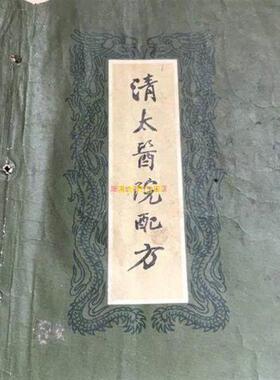 清太醫院配方